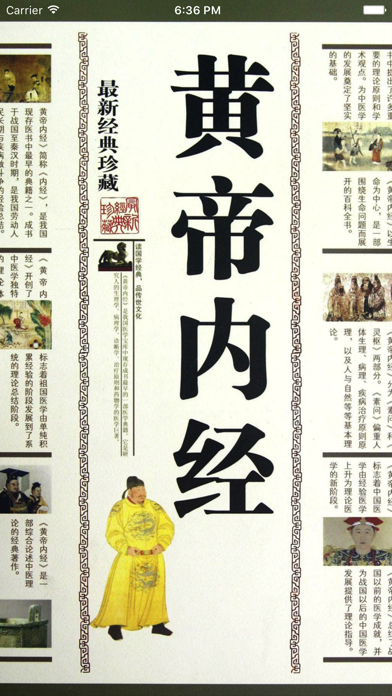 Carrier
6:36 PM
黄帝内经
最新经典珍藏
最新经典珍藏
读国学经典 品传世文化
《黄帝内经》是我国医学宝库中现存成书最早的一部医学典籍。它是研
究人的生理学、病理学、诊断学、治疗原则和药物学的医学巨著。
要的理论原则和学
术观点。为中医学
的发展奠定了坚实
的基础。
命为中心，是一部
围绕生命问题而展
开的百科全书。
灵枢》两部分。《素问》偏重人
体生理、病理、疾病治疗原则原
理，以及人与自然等等基本理
论。
《黄帝内经》
标志着中国医
学由经验医学
上升为理论医
学的新阶段。
国以前的医学成就，并
为战国以后的中国医学
发展提供了理论指导。
黄帝内经》简称《内经》，是我国
现存医书中最早的典籍之一。成书
于战国至秦汉时期，是我国劳动人
民长期与疾病做斗争的经验总结。
《黄帝内
经》开创了
中医学独特
标志着祖国医学由单纯积
累经验的阶段发展到了系
统的理论总结阶段。
《黄帝内经》是一
部综合论述中医理
论的经典著作。